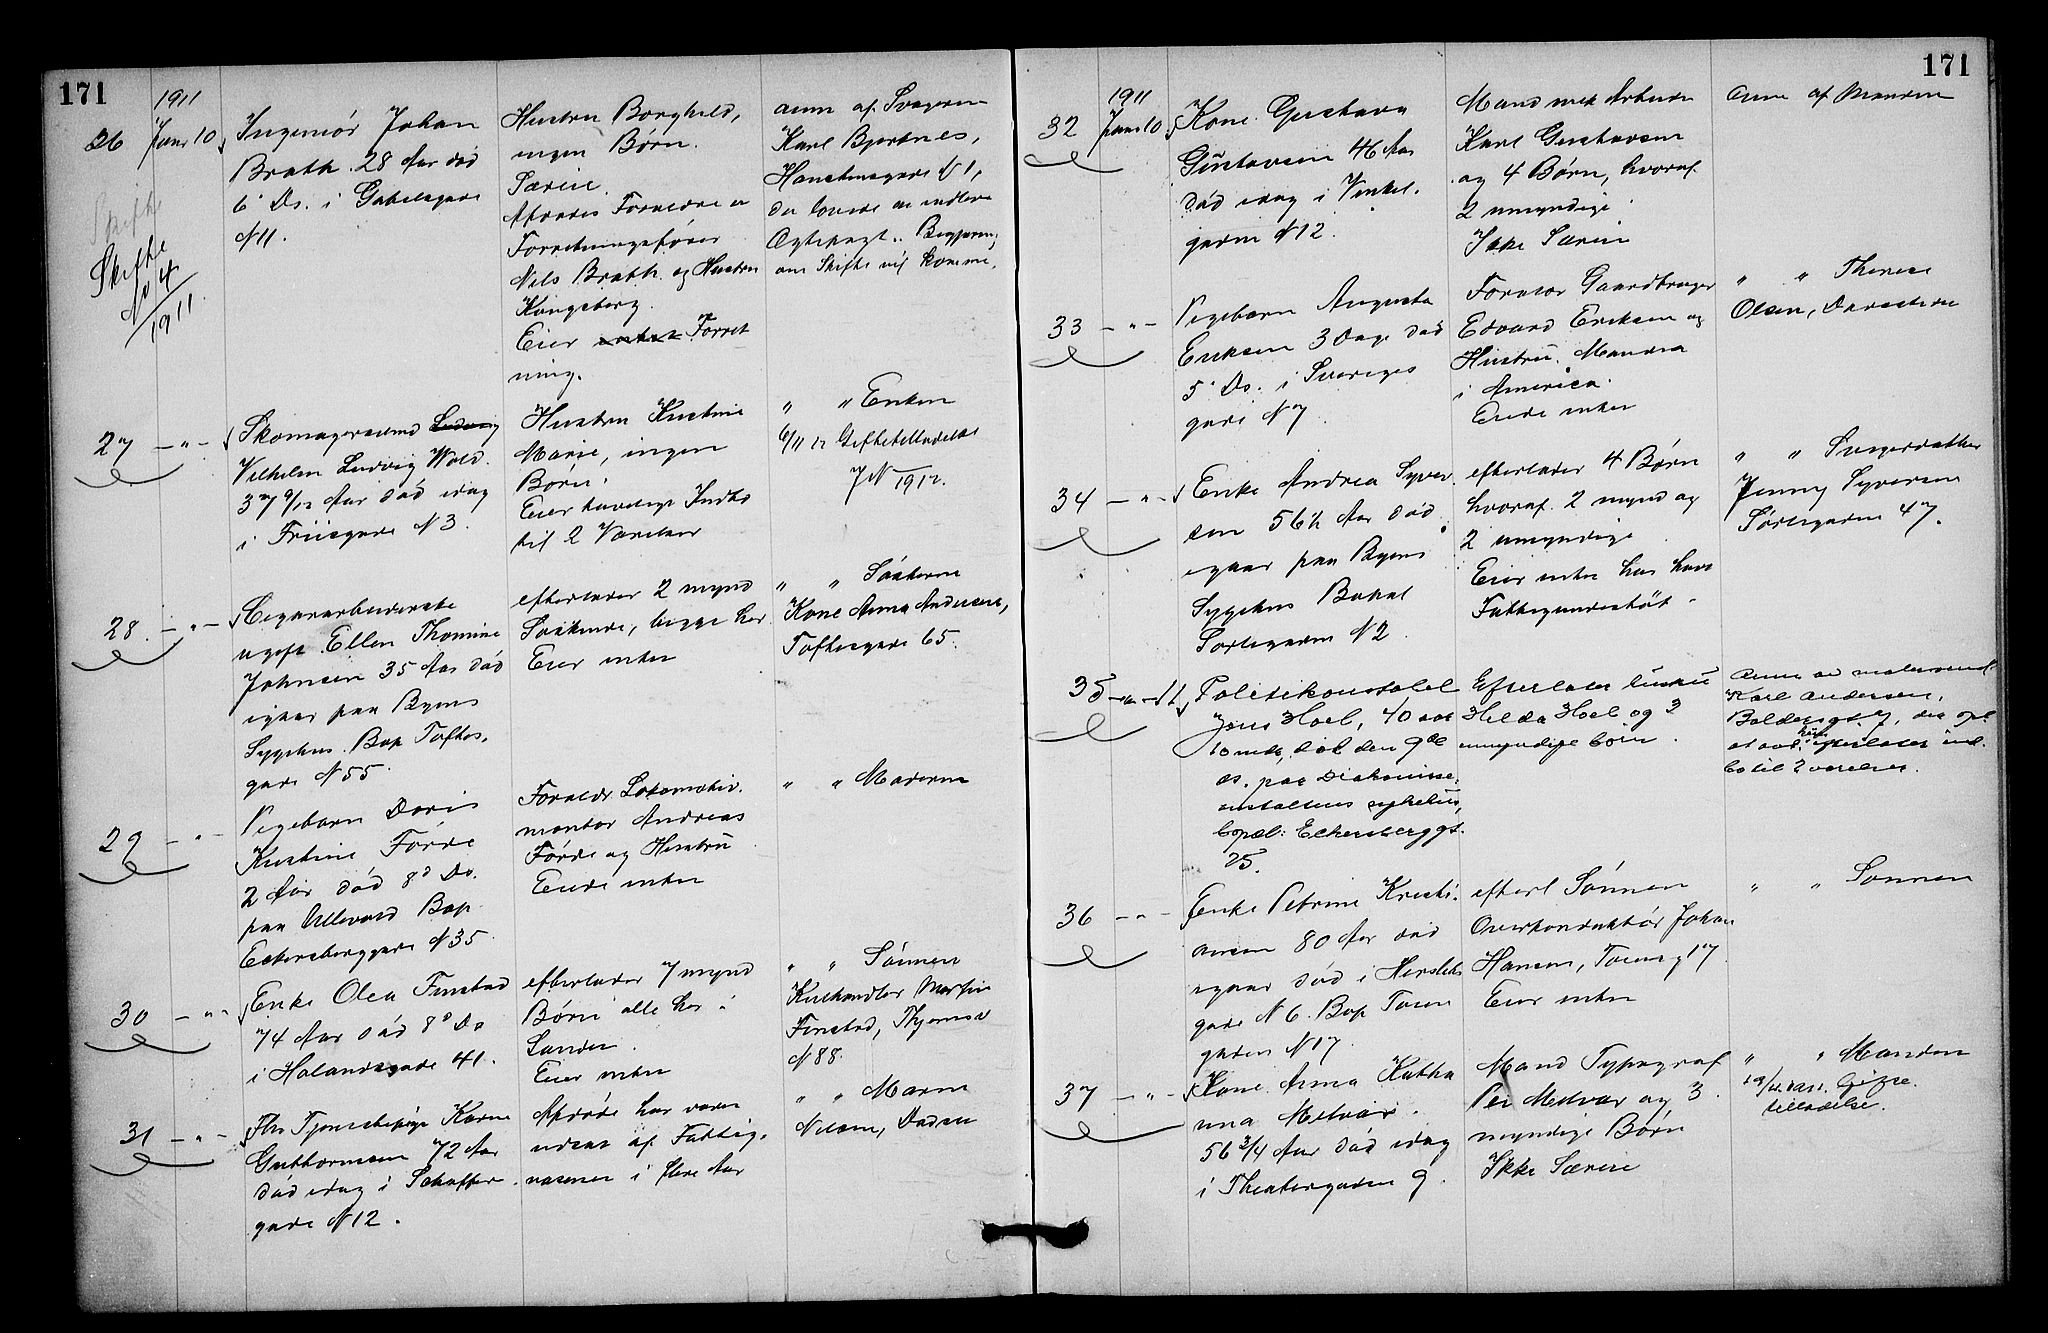 171
1911
26 Janr 10
Ingeniør Johan
Brath. 28 Aar død
6' Ds. i Gabelsgade
N 11.
Hustru Borghild,
ingen Børn.
Særeie.
Afdødes Forældre er
Forretningsfører
Nils Brath og Hustru
Kongsberg.
Eier intet Forret
ning.
anm af Svogeren
Karl Bjertnes,
Hansteensgade N 1,
der lovede at indlevere
Ægtepagt. Begjæring
om Skifte vil komme.
Skifte
Skifte
No 4
1911.
27 - " -
Skomagersvend Ludvig
Vilhelm Ludvig Wold.
37 9/12 Aar død idag
i Friisgade N 3.
Hustru Kristine
Marie, ingen
Børn.
Eier tarveligt Indbo
til 2 Værelser
" " Enken
6/11 12 Giftetilladelse
7 N 1912.
28 - " -
Cigararbeiderske
ugift Ellen Thomine
Johnsen 35 Aar død
igaar paa Byens
Sygehus. Bop Toftes,
gade N 55.
efterlader 2 mynd
Søskende, begge her
Eier intet
" " Søsteren
Kone Anna Andersen,
Toftesgade 65.
29 - " -
Pigebarn Doris
Kristine Førde
2 Aar død 8' Ds.
paa Ullevaal Bop
Eckersberggade N 35
Forældr. Lokomotiv.
montør Andreas
Førde og Hustru
Eiede intet
" " Moderen
30 - " -
Enke Olea Finstad
74 Aar død 8' Ds
i Holandsgade 41.
efterlader 7 mynd
Børn alle her i
Landet.
Eier intet
" " Sønnen
Kulhandler Martin
Finstad,
N 88.
31 - " -
Fhv Tjenestepige Karen
Guttormsen 72 Aar
død idag i Schaffer
gade N 12.
Afdøde har været
udsat af Fattig.
væsenet i flere Aar
" " Maren
Nilsen, Datter
171
1911
32 Janr 10
Kone Gustava
Gustavsen 46 Aar
død idag i Vinkel.
gaden N 12.
Mand mek Arbeider
Karl Gustavsen
og 4 Børn, hvoraf
2 umyndige
Ikke Særeie
Anm af Manden
33 - " -
Pigebarn Augusta
Eriksen 3 Dage død
5' Ds. i Sveriges
gade N 7
Forældr Gaardbruger
Edvard Eriksen og
Hustru. Manden
i America.
Eiede intet
" " Therese
Olsen,
34 - " -
Enke Andrea Syver
sen 56½ Aar død
igaar paa Byens
Sygehus Bopæl
Sorligaden N 2
efterlader 4 Børn
hvoraf 2 mynd og
2 umyndige
Eier intet har havt
Fattigunderstøt -
" " Svigerdatter
Jenny Syversen
Sorligaden 47.
35 - " - 11
Politikonstabel
Jens Hoel, 40 aar
10 mdr, død den 9de
ds. paa Diakonisse,
anstaltens sykehus,
bopæl: Eckersberggt.
25.
Efterlater hustru
Hilda Hoel og 3
umyndige børn.
Anm av malersvend
Karl Andersen,
Baldersgt 7, der opl
at avd. efterlater ind.
bo til 2 værelser.
36 - " -
Enke Petrine Kristi.
ansen 80 Aar død
igaar død i Herslebs
gade N 6. Bop Toien
gaden N 17.
efterl Sønnen
Overkonduktør Johan
Hansen, Toieng 17
Eier intet
" " Sønnen
37 - " -
Kone Anna Katha
rina Melvær.
56 3/4 Aar død idag
i Theatergaden 9.
Mand Typograf
Per Melvær og 3
myndige Børn
Ikke Særeie
" " Manden
Gifte.
tilladelse.